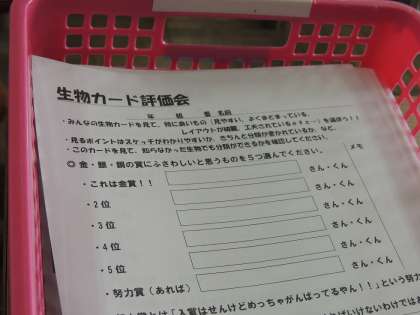 生物カード評価会
年 組 番 名前
・みんなの生物カードを見て、特に良いもの（見やすい、よくまとまっている、
レイアウトが綺麗、工夫されているｅｔｃ…）を選ぼう！！
・見るポイントはスケッチがわかりやすいか、きちんと分類が書かれているか、など。
・このカードを見て、知らなかった生物でも分類ができるかを確認してください。
◎金・銀・銅の賞にふさわしいと思うものを５つ選んでください。
メモ
・これは金賞！！ さん・くん
・２位 さん・くん
・３位 さん・くん
・４位 さん・くん
・５位 さん・くん
・努力賞（あれば） さん・くん
「入賞はせんけどめっちゃがんばってるやん！！」という努力